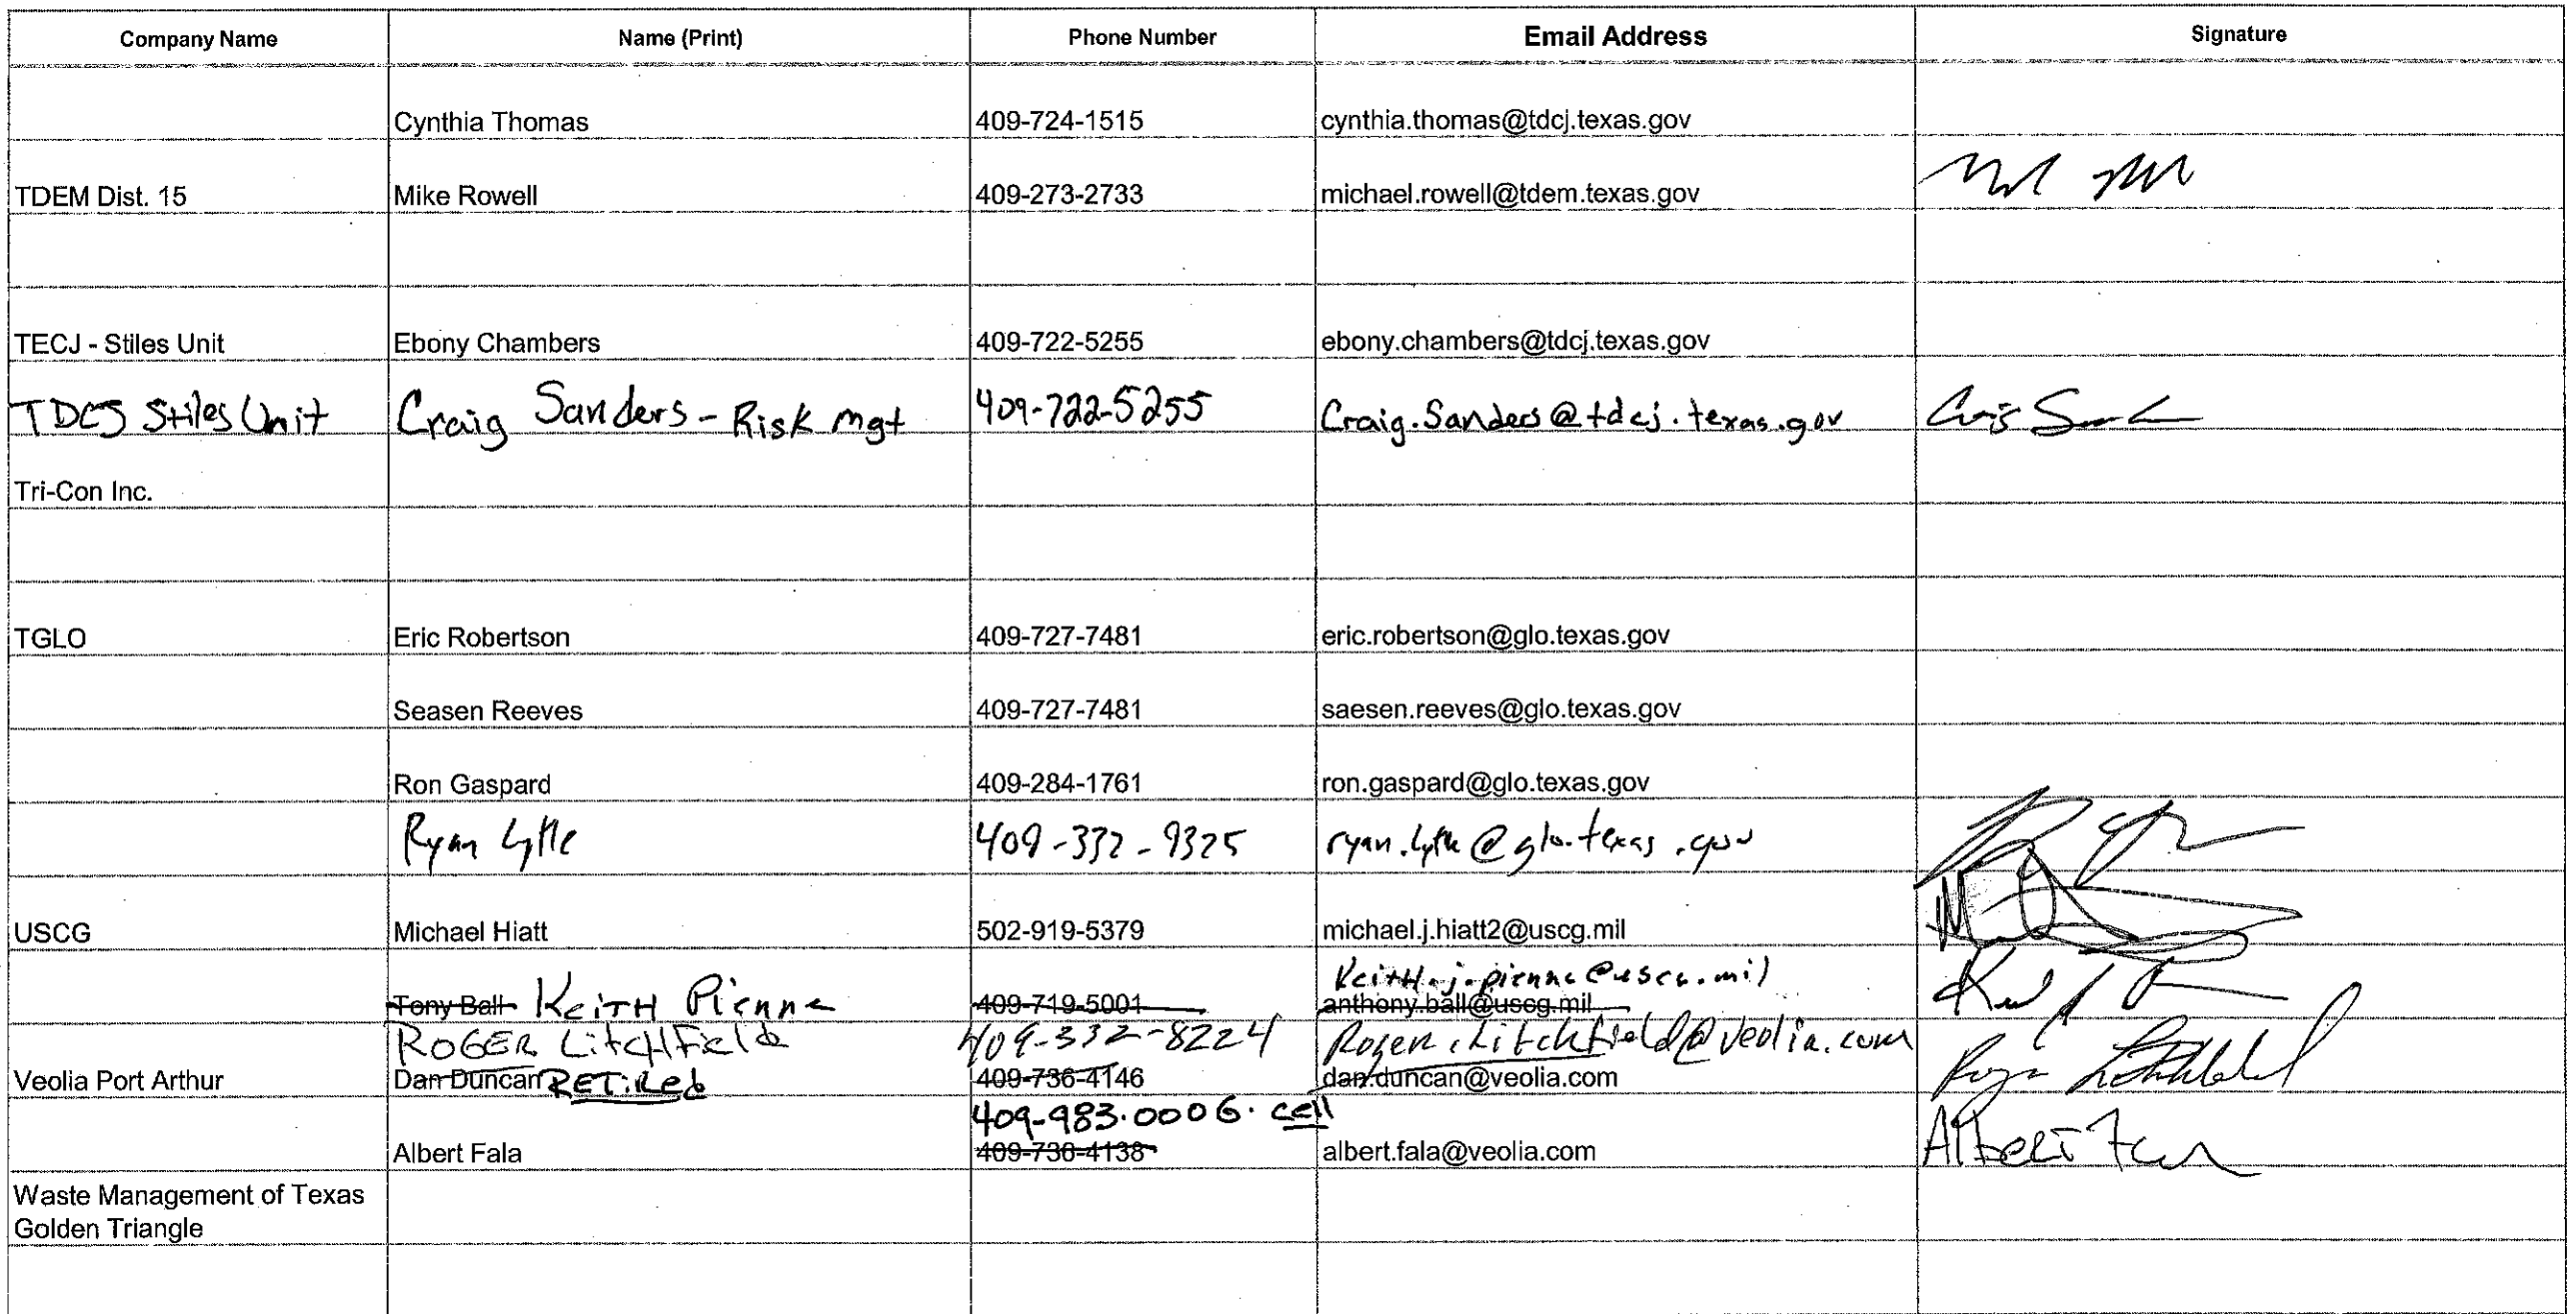 Company Name Name (Print) Phone Number Email Address Signature
Cynthia Thomas 409-724-1515 cynthia.thomas@tdcj.texas.gov
TDEM Dist. 15 Mike Rowell 409-273-2733 michael.rowell@tdem.texas.gov
TECJ - Stiles Unit Ebony Chambers 409-722-5255 ebony.chambers@tdcj.texas.gov
TDCJ Stiles Unit Craig Sanders - Risk Mgt 409-722-5255 Craig.Sanders@tdcj.texas.gov
Tri-Con Inc.
TGLO Eric Robertson 409-727-7481 eric.robertson@glo.texas.gov
Seasen Reeves 409-727-7481 saesen.reeves@glo.texas.gov
Ron Gaspard 409-284-1761 ron.gaspard@glo.texas.gov
Ryan Lytle 409-332-9325 ryan.lytle@glo.texas.gov
USCG Michael Hiatt 502-919-5379 michael.j.hiatt2@uscg.mil
Keith.j.pienne@uscg.mil
Tony Ball Keith Pienne 409-719-5001 anthony.ball@uscg.mil
Roger Litchfield 409-332-8224 Roger.Litchfield@veolia.com
Veolia Port Arthur Dan Duncan RETIRED 409-736-4146 dan.duncan@veolia.com
409-983.0006. cell
Albert Fala 409-736-4138 albert.fala@veolia.com
Albert
Waste Management of Texas
Golden Triangle